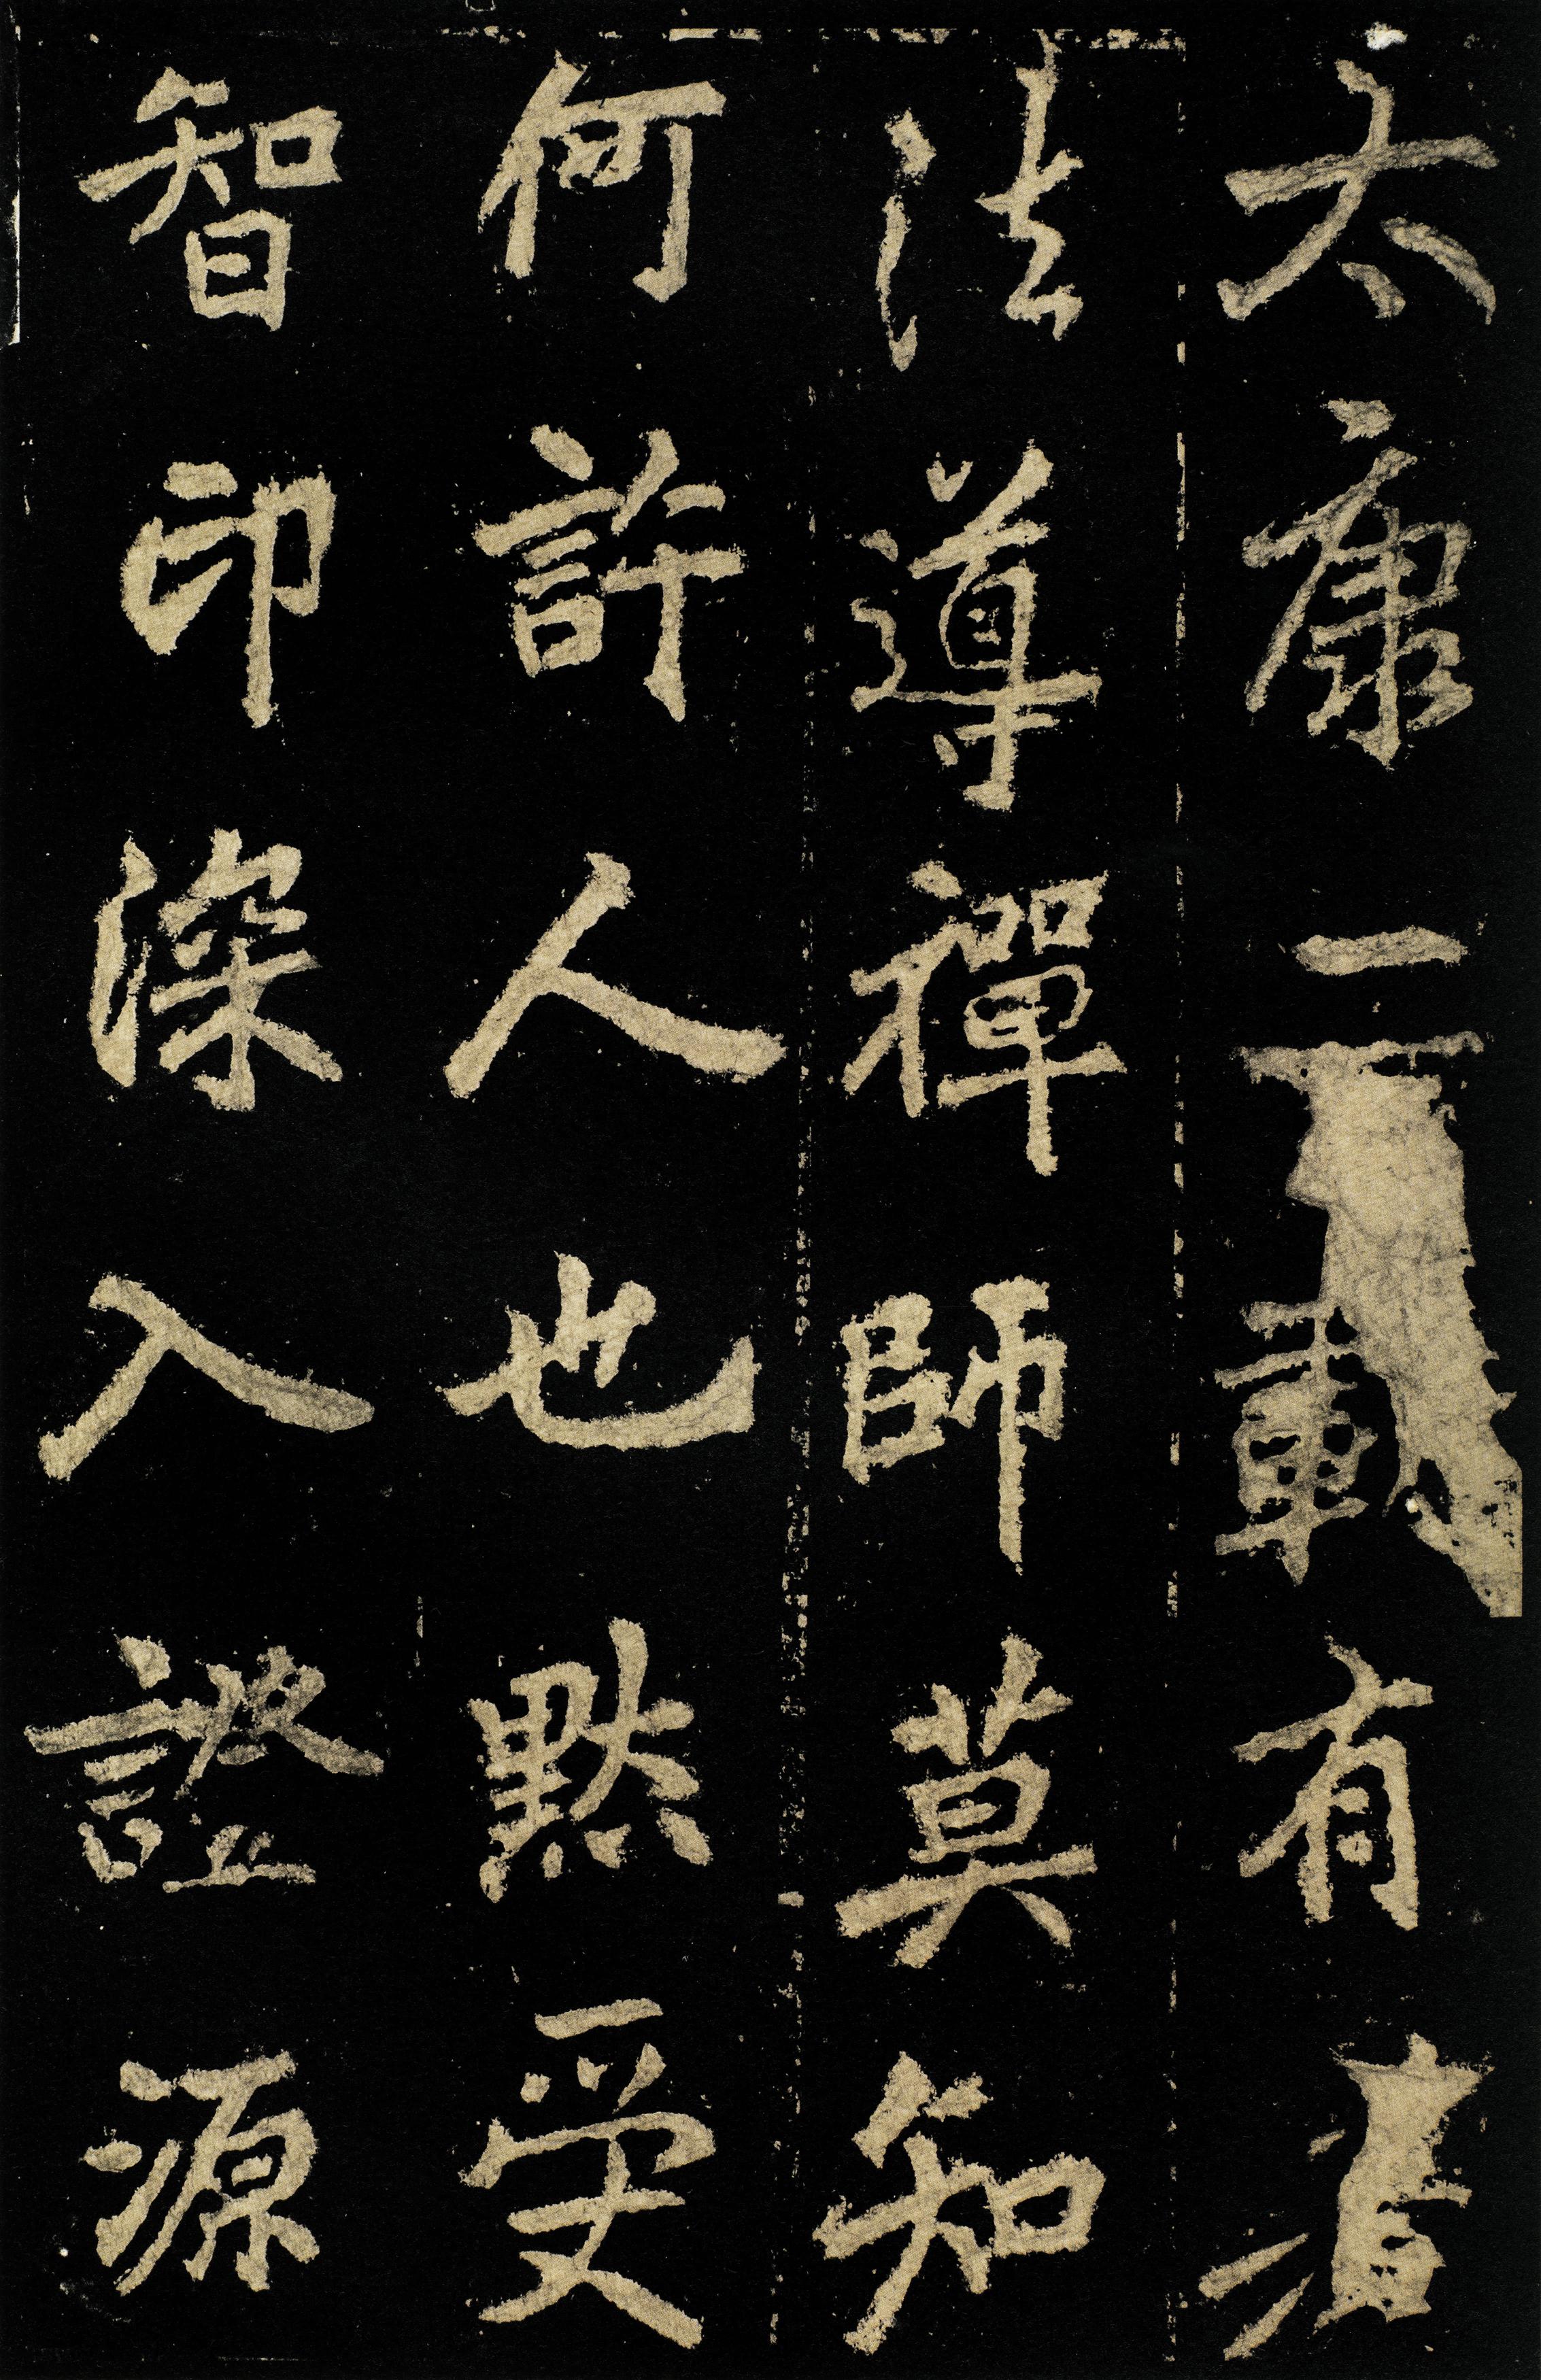 太康二載有
法導禪師莫知
何許人也黙受
智印深入證源